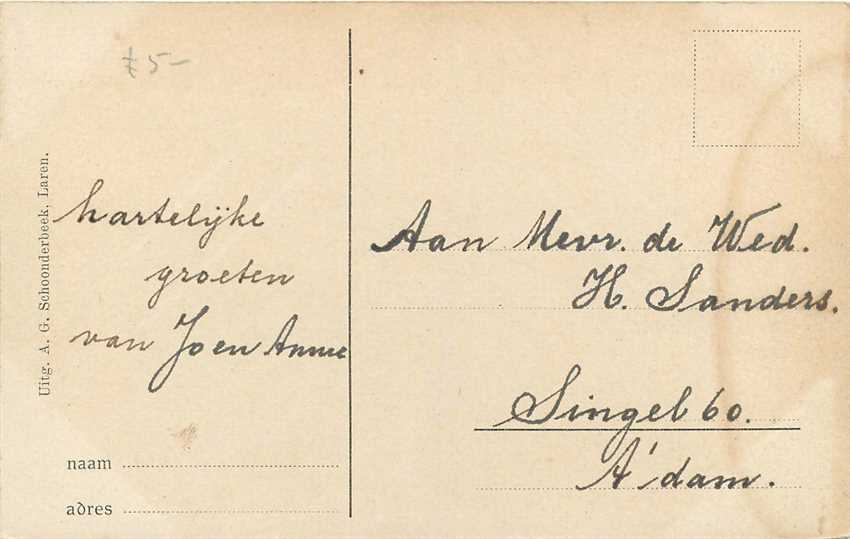 #5-
Uitg. A. G. Schoonderbeek, Laren.
hartelijke
groeten
van Jo en Annie
naam
adres
Aan Mevr. de Wed.
H. Sanders.
Singel 60.
A'dam.